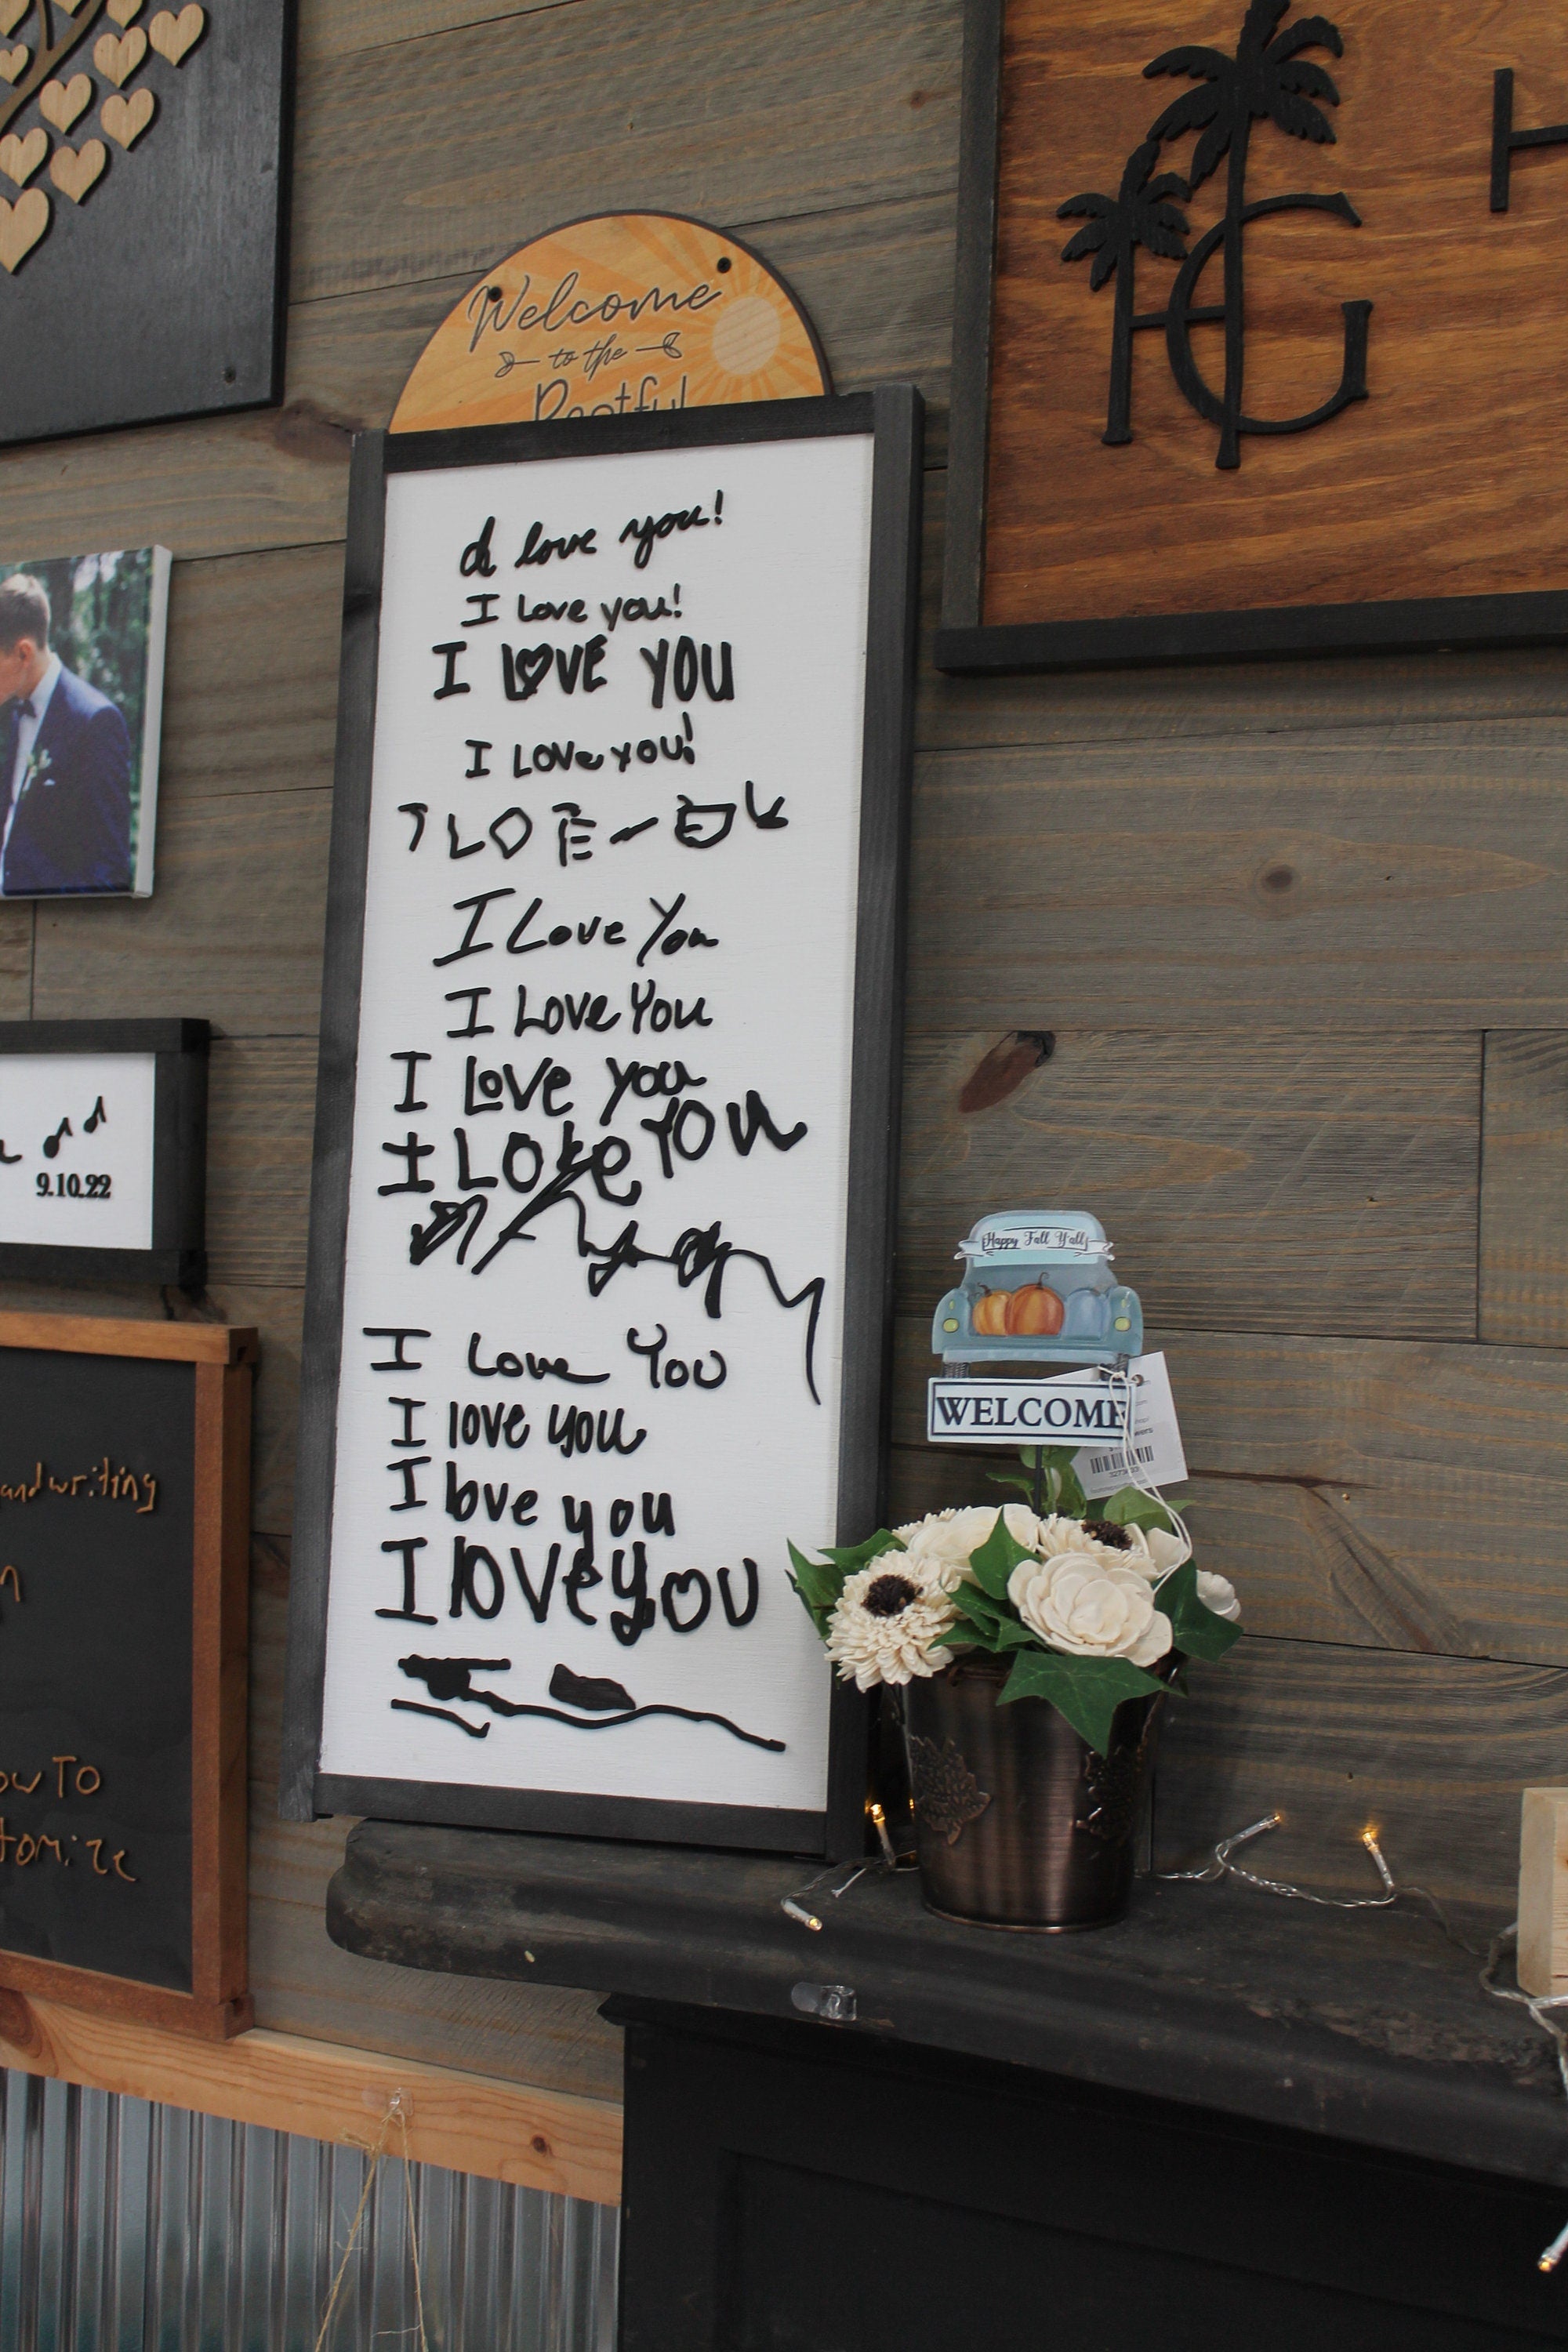 Welcome
to the
H
HG
I love you!
I Love you!
I LOVE YOU
I LOVe you!
I Love You
I Love You
I Love you
I LOVe YOU
I Love You
I love you
I love you
I love you
9.10.22
Happy Fall Y'all
WELCOME
andwriting
ow TO
tomize